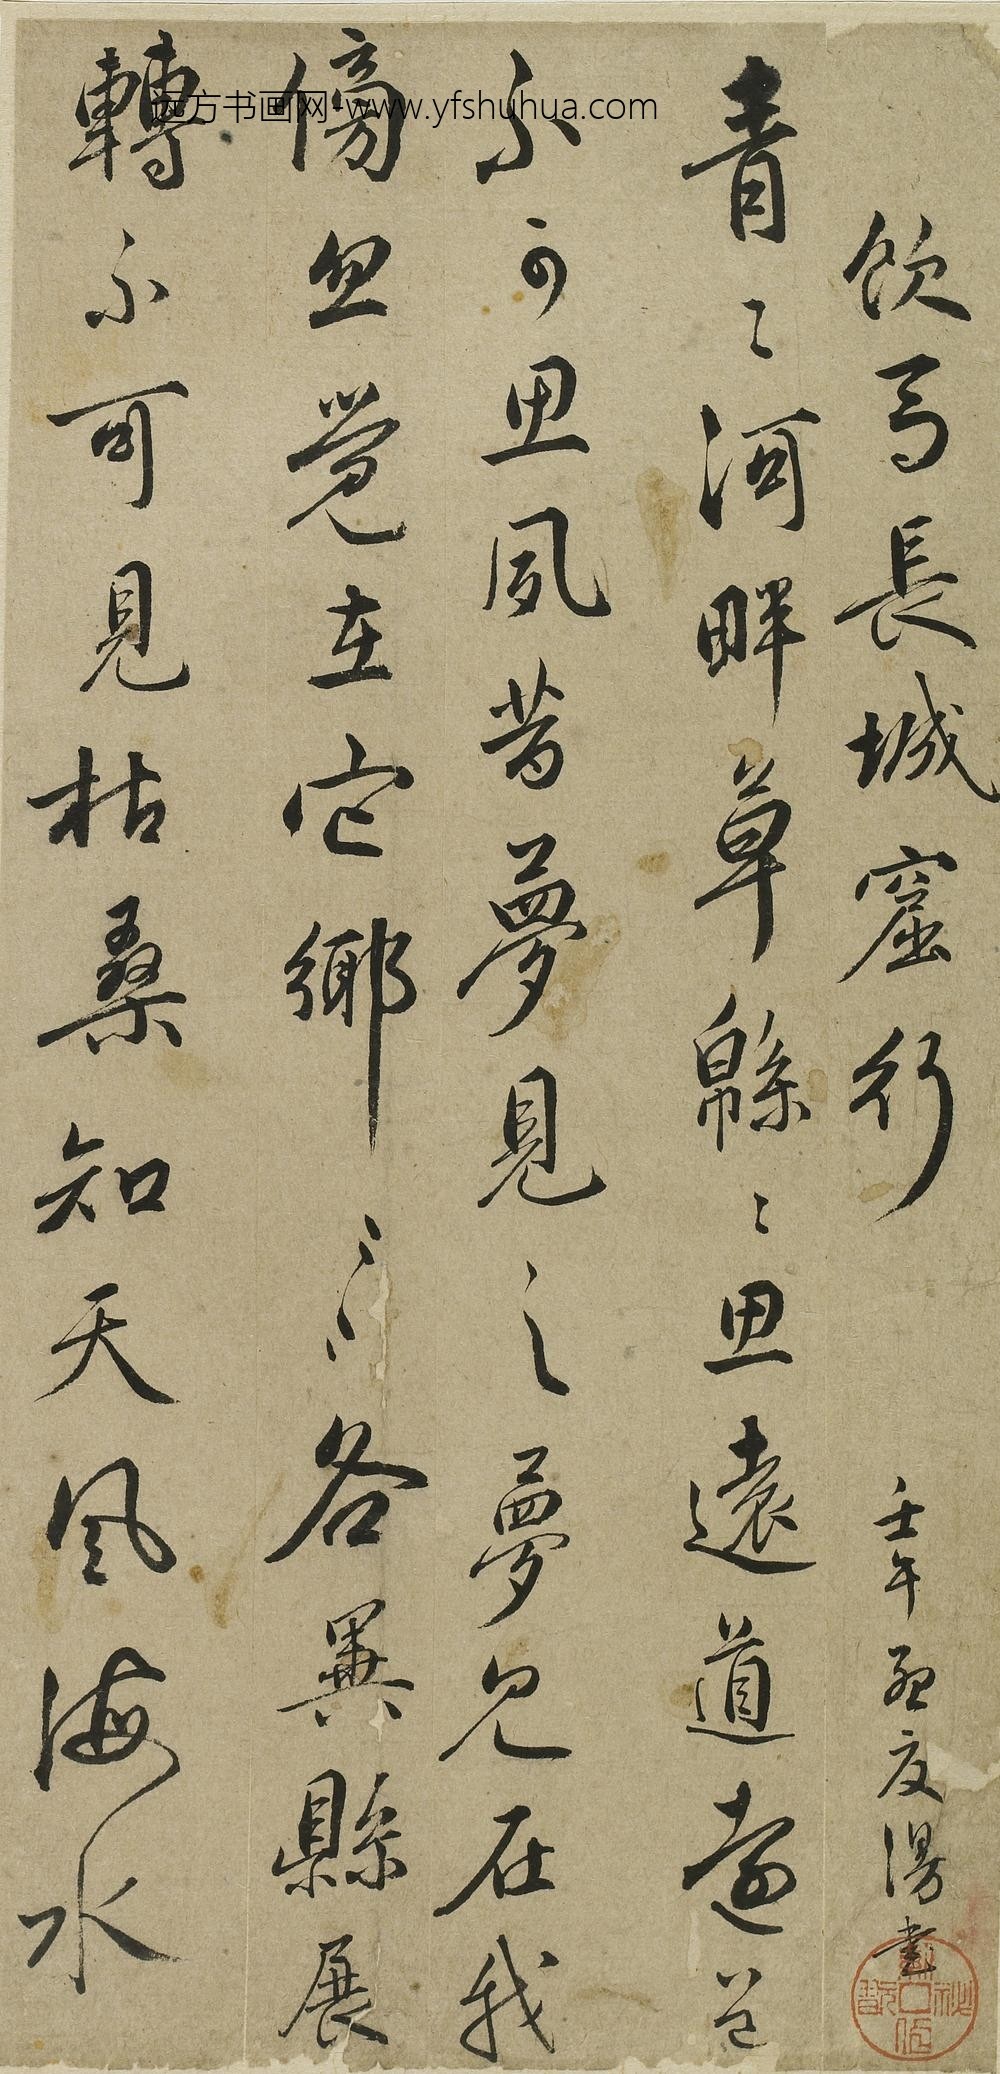 飲馬長城窟行
壬午 湯書
青〻河畔草緜〻思遠道遠道
不可思夙昔夢見之夢見在我
傍忽覺在它鄉〻〻各異縣展
轉不可見枯桑知天風海水
远方书画网-www.yfshuhua.com